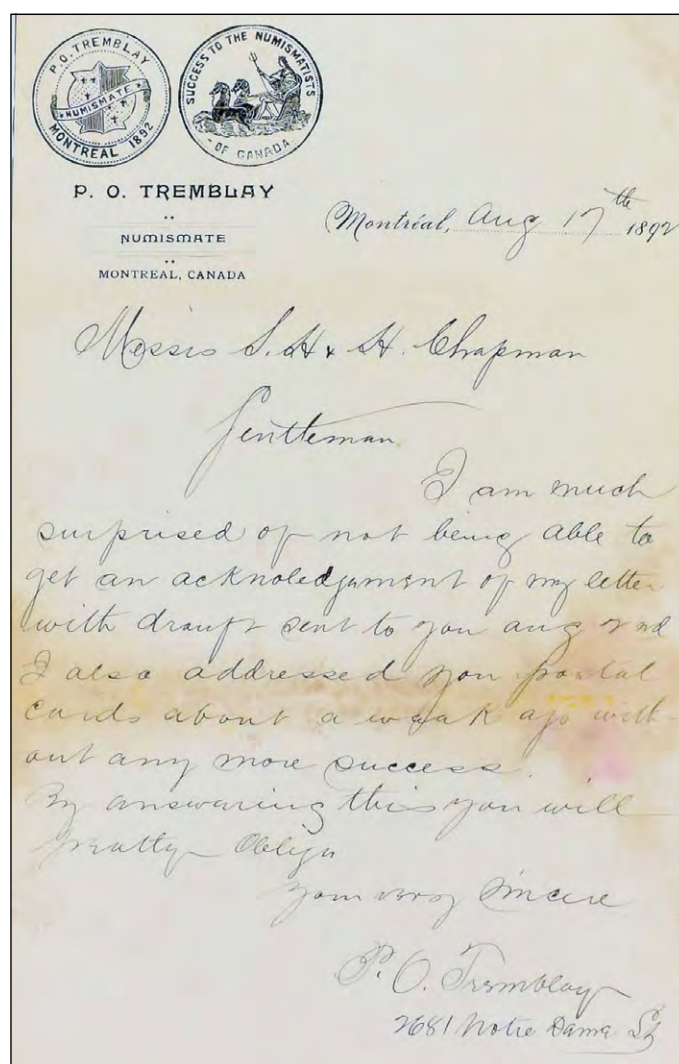 P.O. TREMBLAY
NUMISMATE
MONTREAL 1892
SUCCESS TO THE NUMISMATISTS
- OF CANADA -
P. O. TREMBLAY
NUMISMATE
MONTREAL, CANADA
Montréal, Aug 17th 1892
Messrs S. H & H. Chapman
Gentleman
I am much
surprised of not being able to
get an acknoledgement of my letter
with draupt sent to you aug 2nd
I also addressed you postal
cards about a weak ago with-
out any more success.
By answaring this you will
greatly Oblige
Your very Sincere
P. O. Tremblay
2681 Notre Dame St